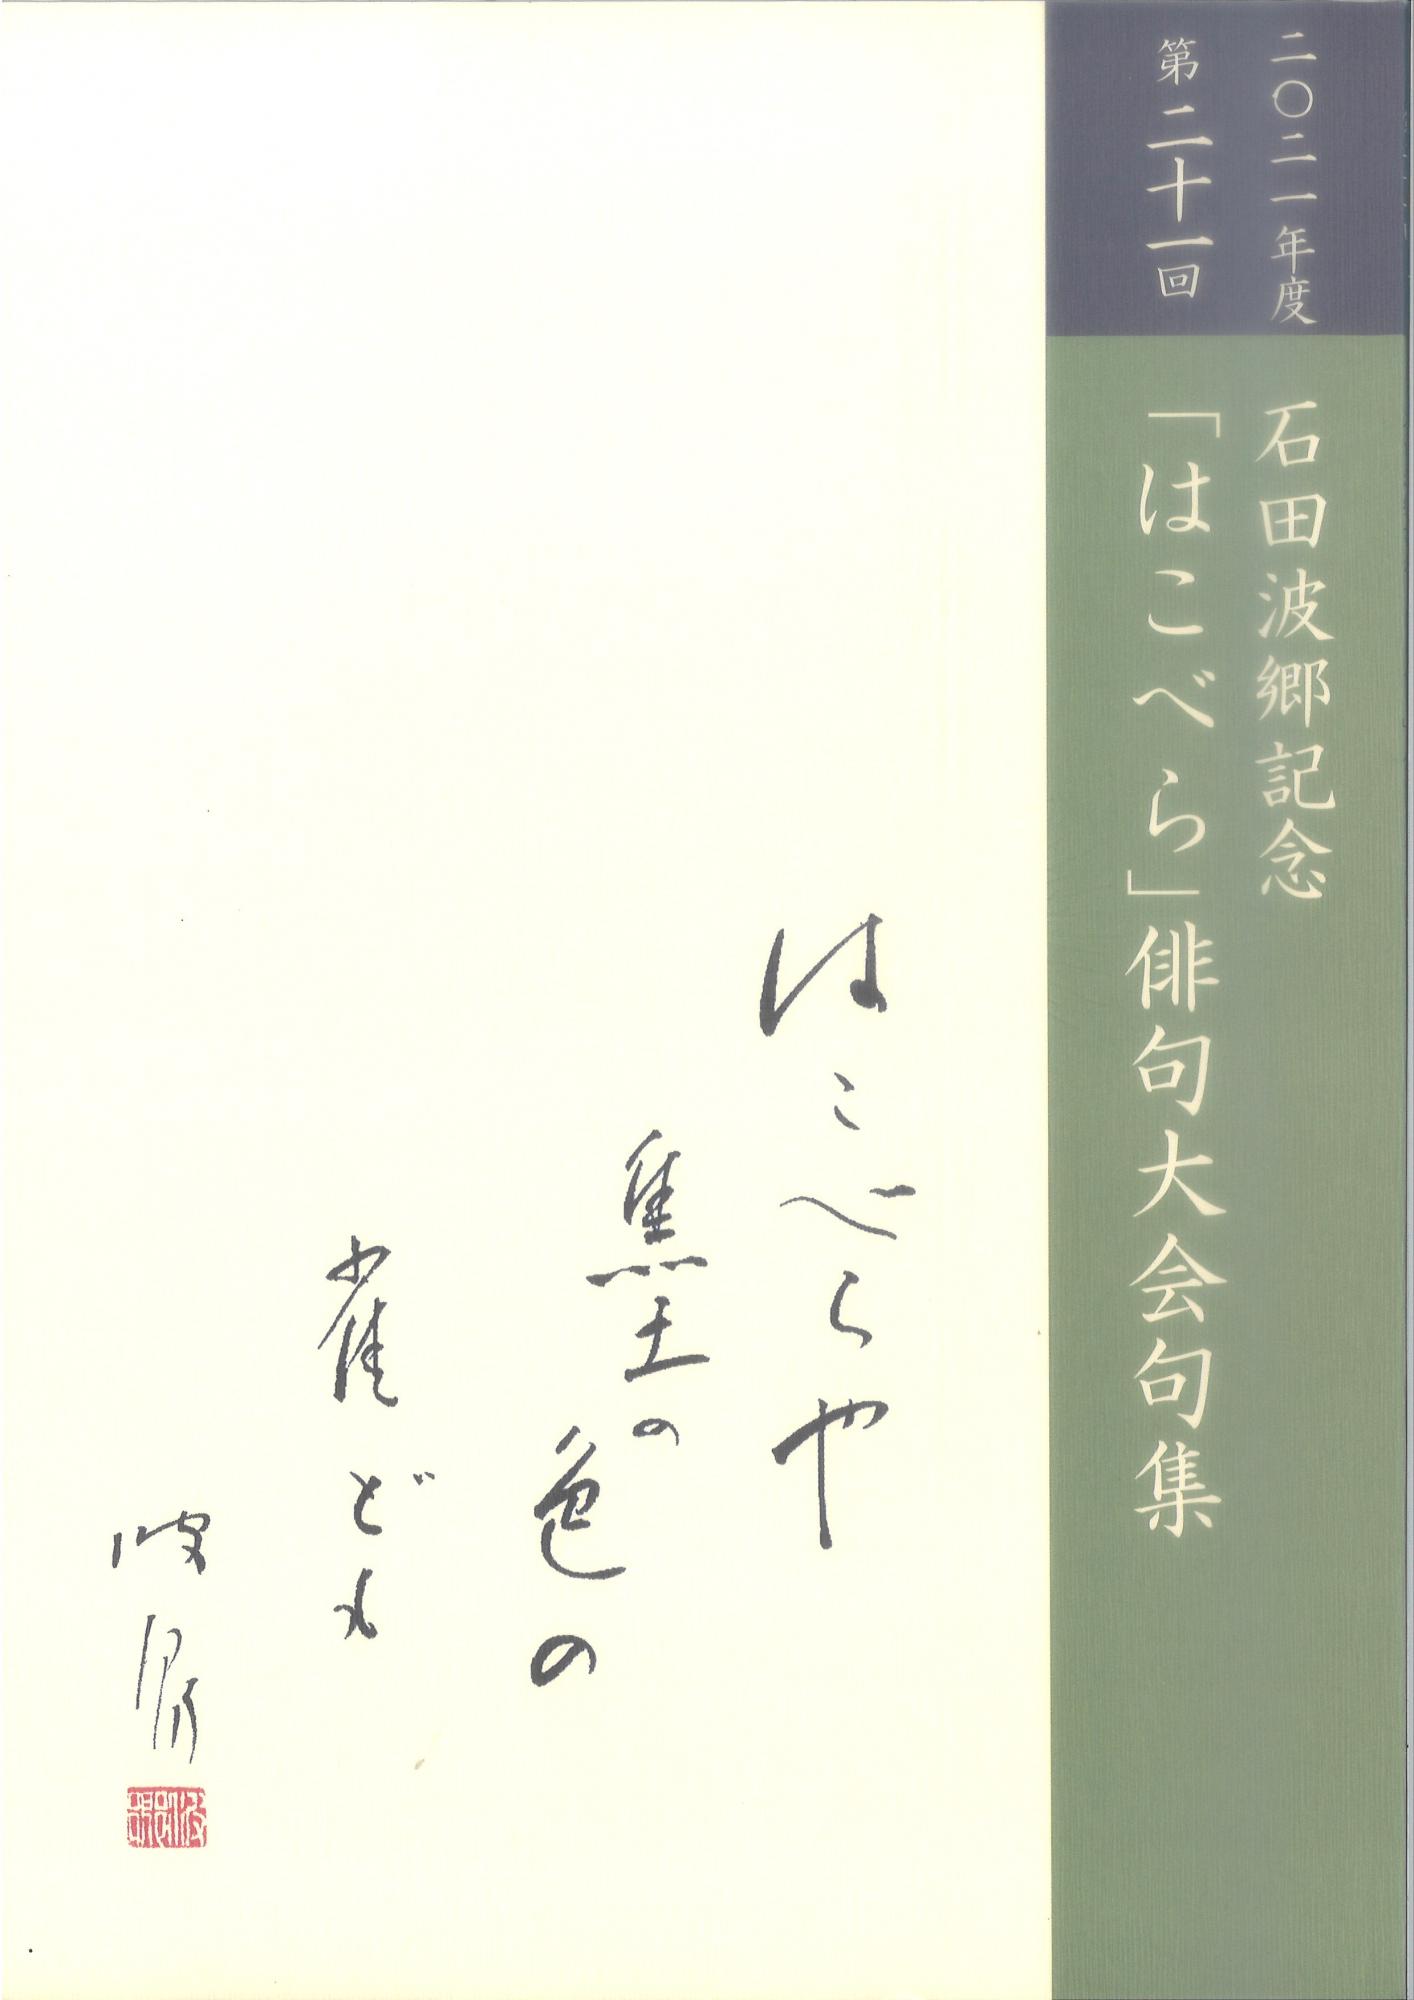 二〇二一年度
第二十一回
石田波郷記念
「はこべら」俳句大会句集
はこべらや
焦土の
色の
雀ども
波郷